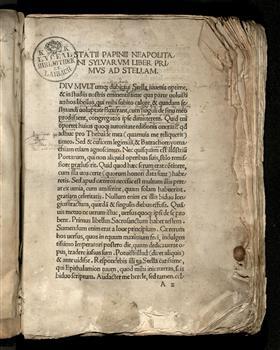 STATII PAPINII NEAPOLITA
NI SYLVARUM LIBER PRI
MVS AD STELLAM.
K. K.
LYCEAL
BIBLIOTHEK
LAIBACH
DIV MVLT
dubitaui Stella iuuenis optime,
& in studiis nostris eminentissime qua parte uoluisti
hos libellos, qui mihi subito calore, & quadam fe
stinandi uoluptate fluxerunt, cum singuli de sinu meo
, congregatos ipse dimitterem. Quid
huius quoq; autoritate editionis
adhuc pro Thebaide mea
. Sed & culicem legimus, & Batrachomyoma
chiam etiam agnoscimus. Nec quisquam est illustrium
Poetarum, qui non aliquid operibus suis, stilo remis
siore
. Quid quod
cum illa uos certe (quorum honori data sunt) habue
. Sed apud
ex uenia, cum amiserint, quam solam habuerunt,
gratiam celeritatis. Nullum enim ex illis biduo lon
gius tractum, quædam & singulis diebus effusa. Quam
timeo ne uerum istuc, uersus quoq; ipsi de se pro
bent. Primus libellus Sacrosanctum habet testem.
Sumendum enim erat a Ioue principium. Centum
hos uersus, quos in equum maximum feci, indulgen
tissimo Imperatori postero die, quam dedicauerat o
pus, tradere iussus sum. Potuisti illud
& ante uidisse. Respondebis illi tu Stella carissime,
qui Epithalamion tuum, quod mihi iniunxeras, scis
biduo scriptum. Audacter me hercle, sed tamen
A ii